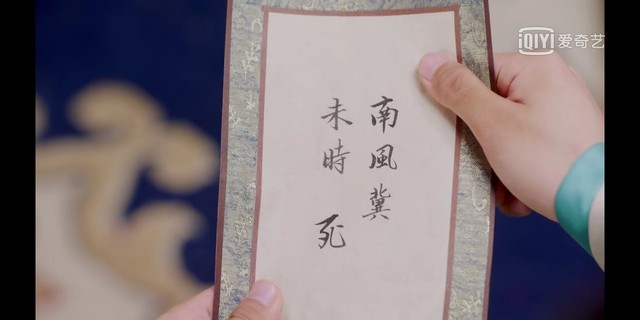 南風冀
未時 死
iQIYI 爱奇艺